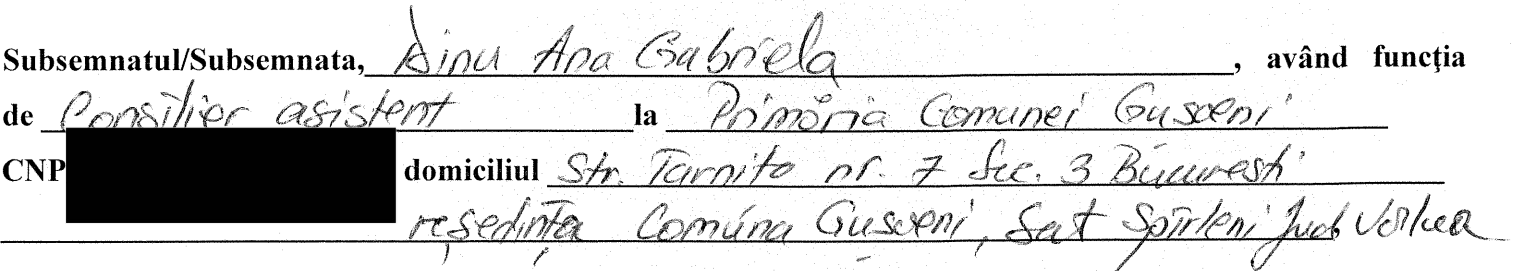 Subsemnatul/Subsemnata, Dinu Ana Gabriela, având funcţia
de Consilier asistent la Primăria Comunei Gusoeni
CNP domiciliul Str. Tarnita nr. 7 Sec. 3 București
reședința Comuna Gusoeni, Sat Spîrleni Jud Vâlcea